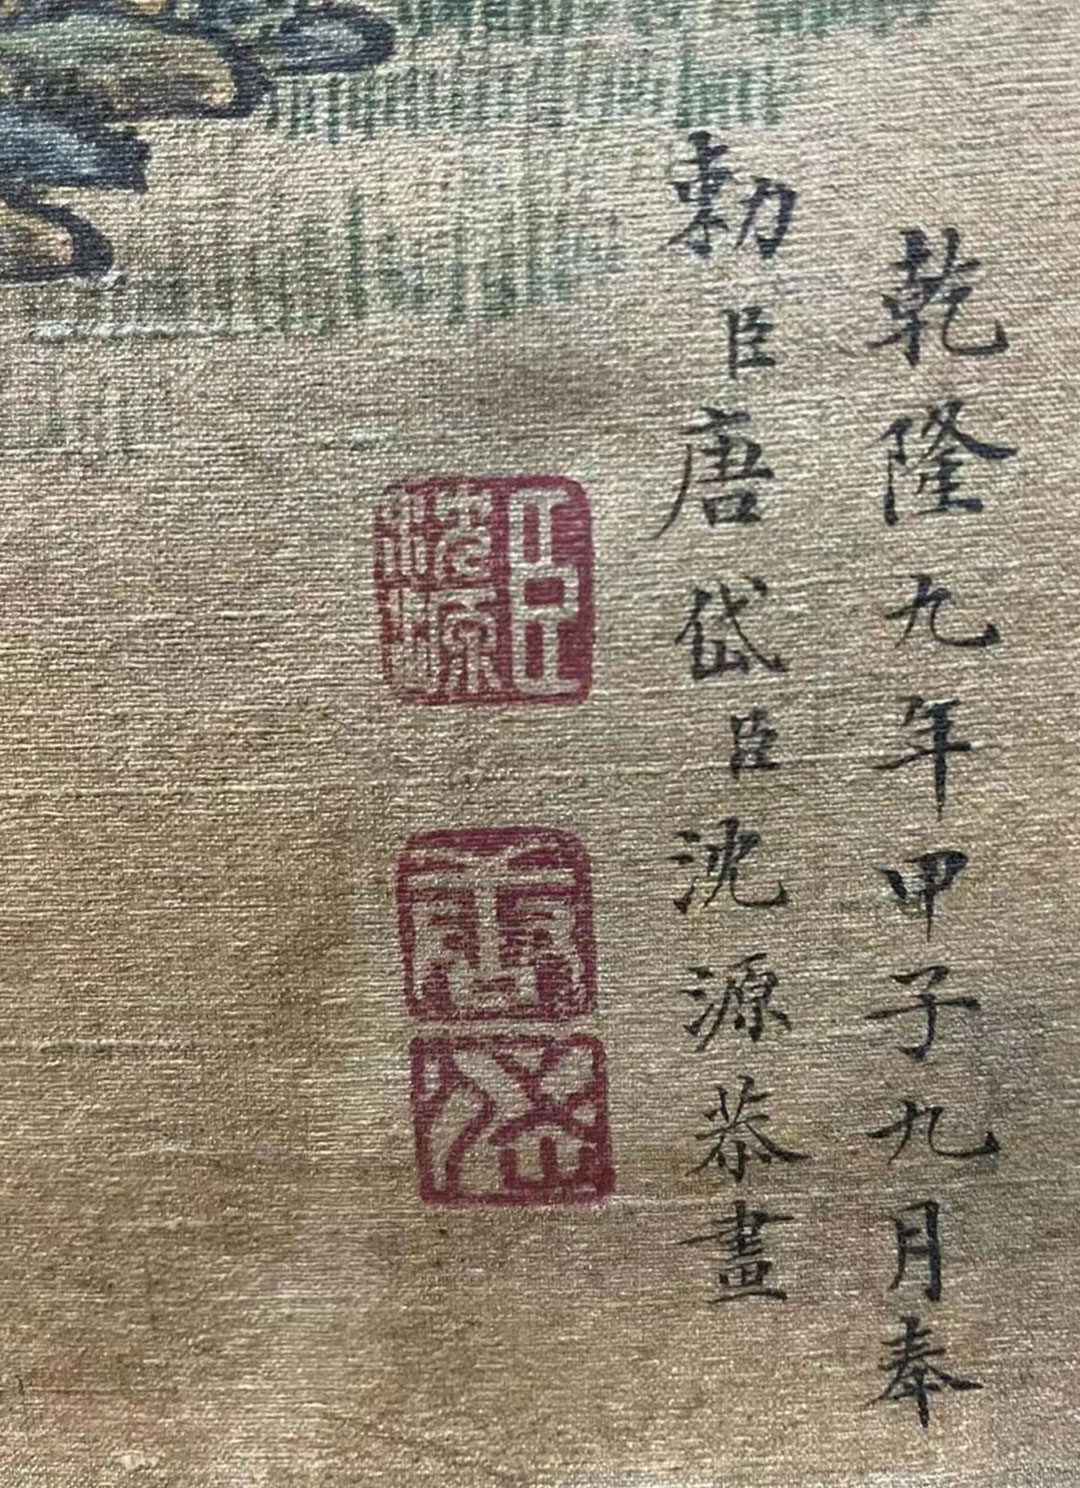 乾隆九年甲子九月奉
勅臣唐岱臣沈源恭畫
唐
岱